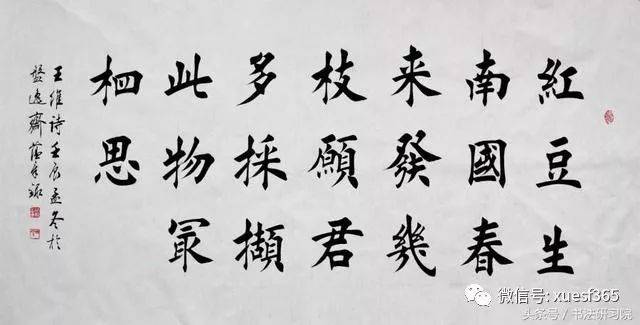 紅豆生
南國春
来發幾
枝願君
多採擷
此物冣
相思
王維詩壬辰孟冬於
逸齋
微信号: xuesf365
头条号 / 书法研习院